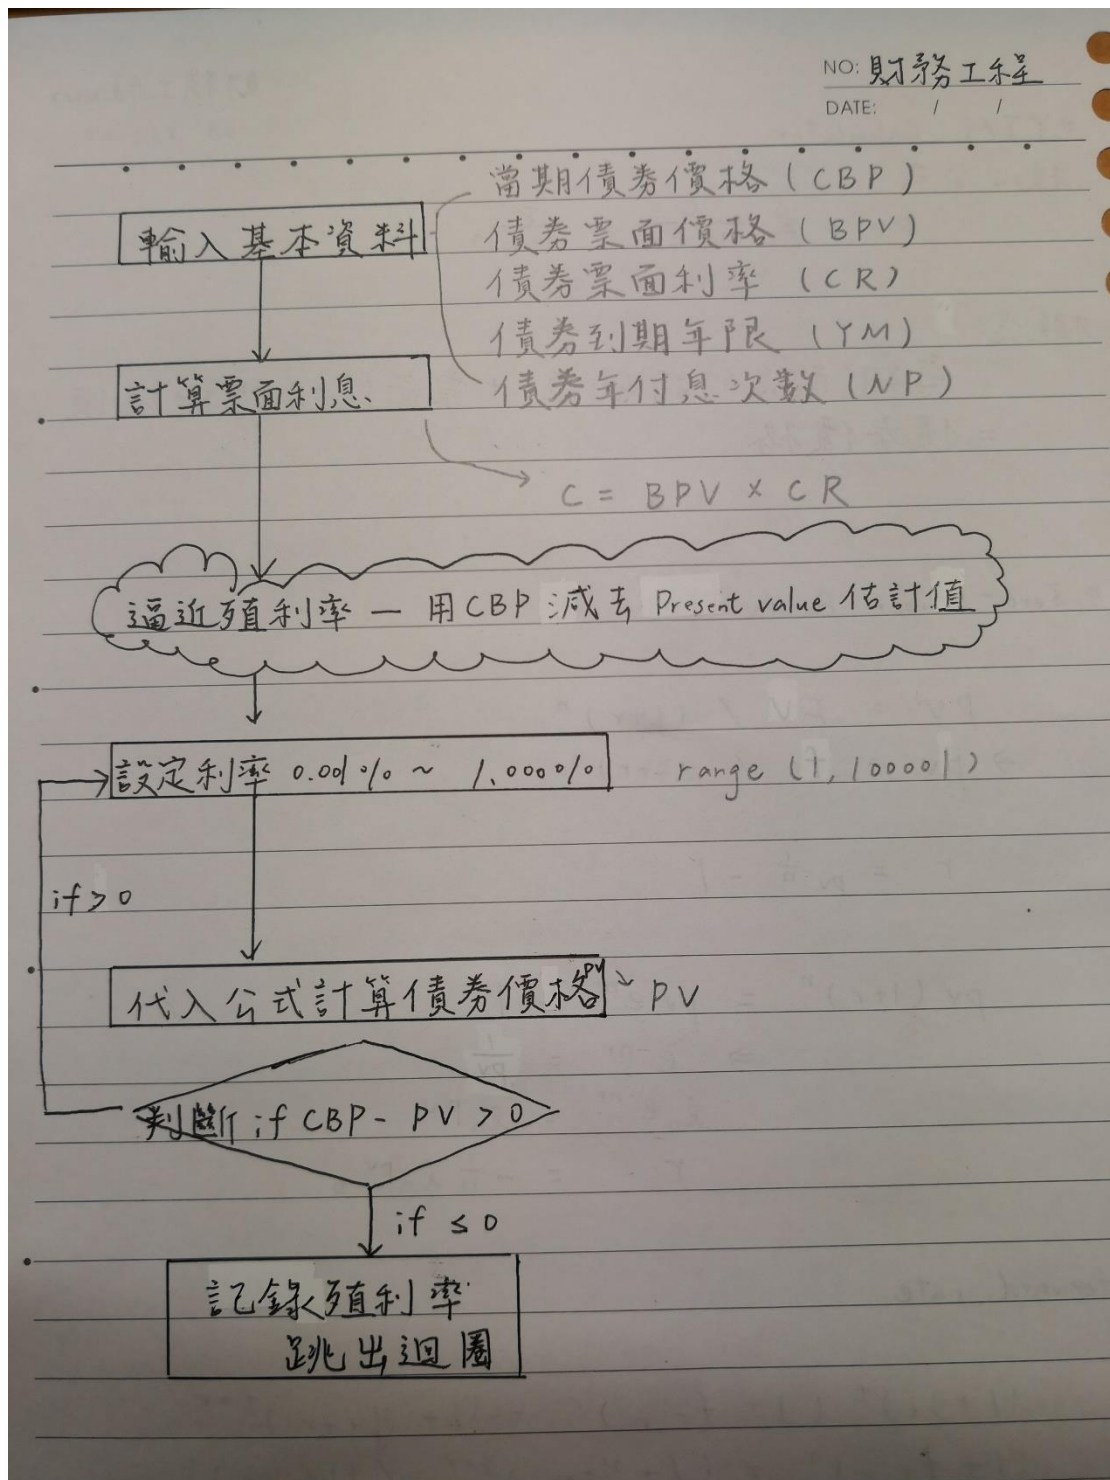 NO: 財務工程
DATE: / /
當期債券價格 (CBP)
輸入基本資料
債券票面價格 (BPV)
債券票面利率 (CR)
債券到期年限 (YM)
計算票面利息
債券年付息次數 (NP)
C = BPV × CR
逼近殖利率 — 用CBP 減去 Present value 估計值
設定利率 0.001% ~ 1.000%
range (1, 100001)
if > 0
代入公式計算債券價格PV
PV
判斷 if CBP - PV > 0
if ≤ 0
記錄殖利率
跳出迴圈